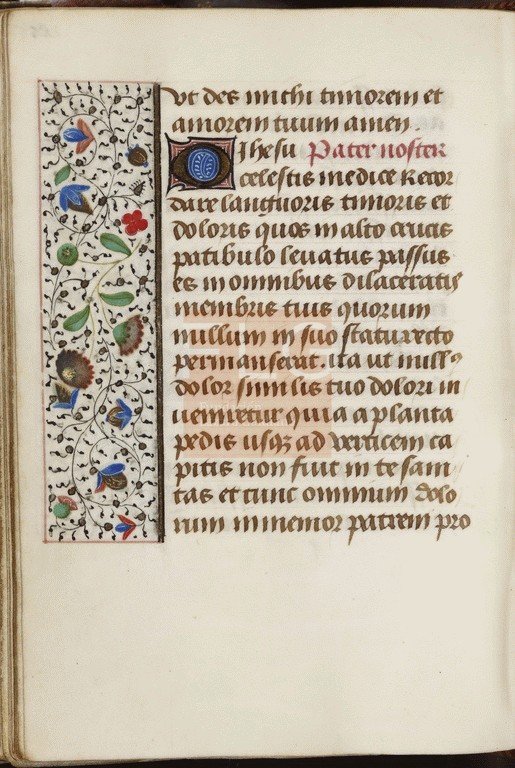 ut des michi timorem et
amorem tuum amen.
O Ihesu Pater noster
celestis medice Recor
dare languoris timoris et
doloris quos in alto crucis
patibulo levatus passus
es in omnibus dilaceratis
membris tuis quorum
nullum in suo statu recto
permanserat. ita ut null9
dolor similis tuo dolori in
ueniretur quia a planta
pedis usqz ad verticem ca
pitis non fuit in te sani
tas et tunc omnium dolo
rum inmemor patrem pro